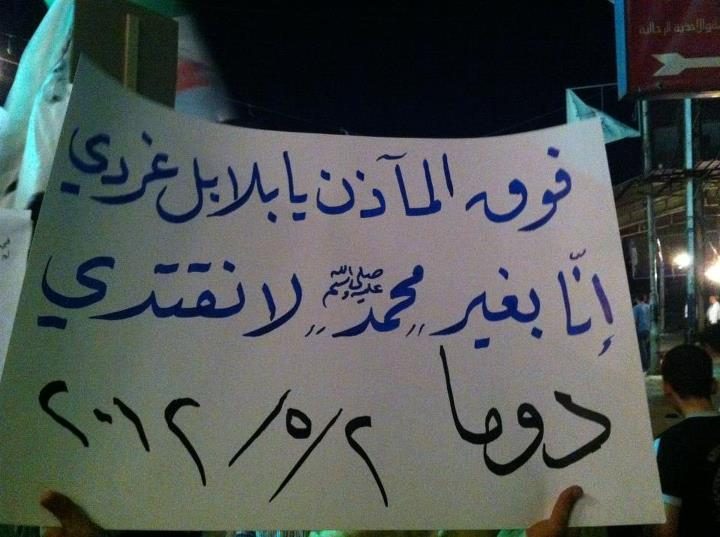 والأحذية الرجالية
فوق المآذن يا بلابل غردي
إنّا بغير "محمد ﷺ" لا نقتدي
دوما ٢/٥/٢٠١٢